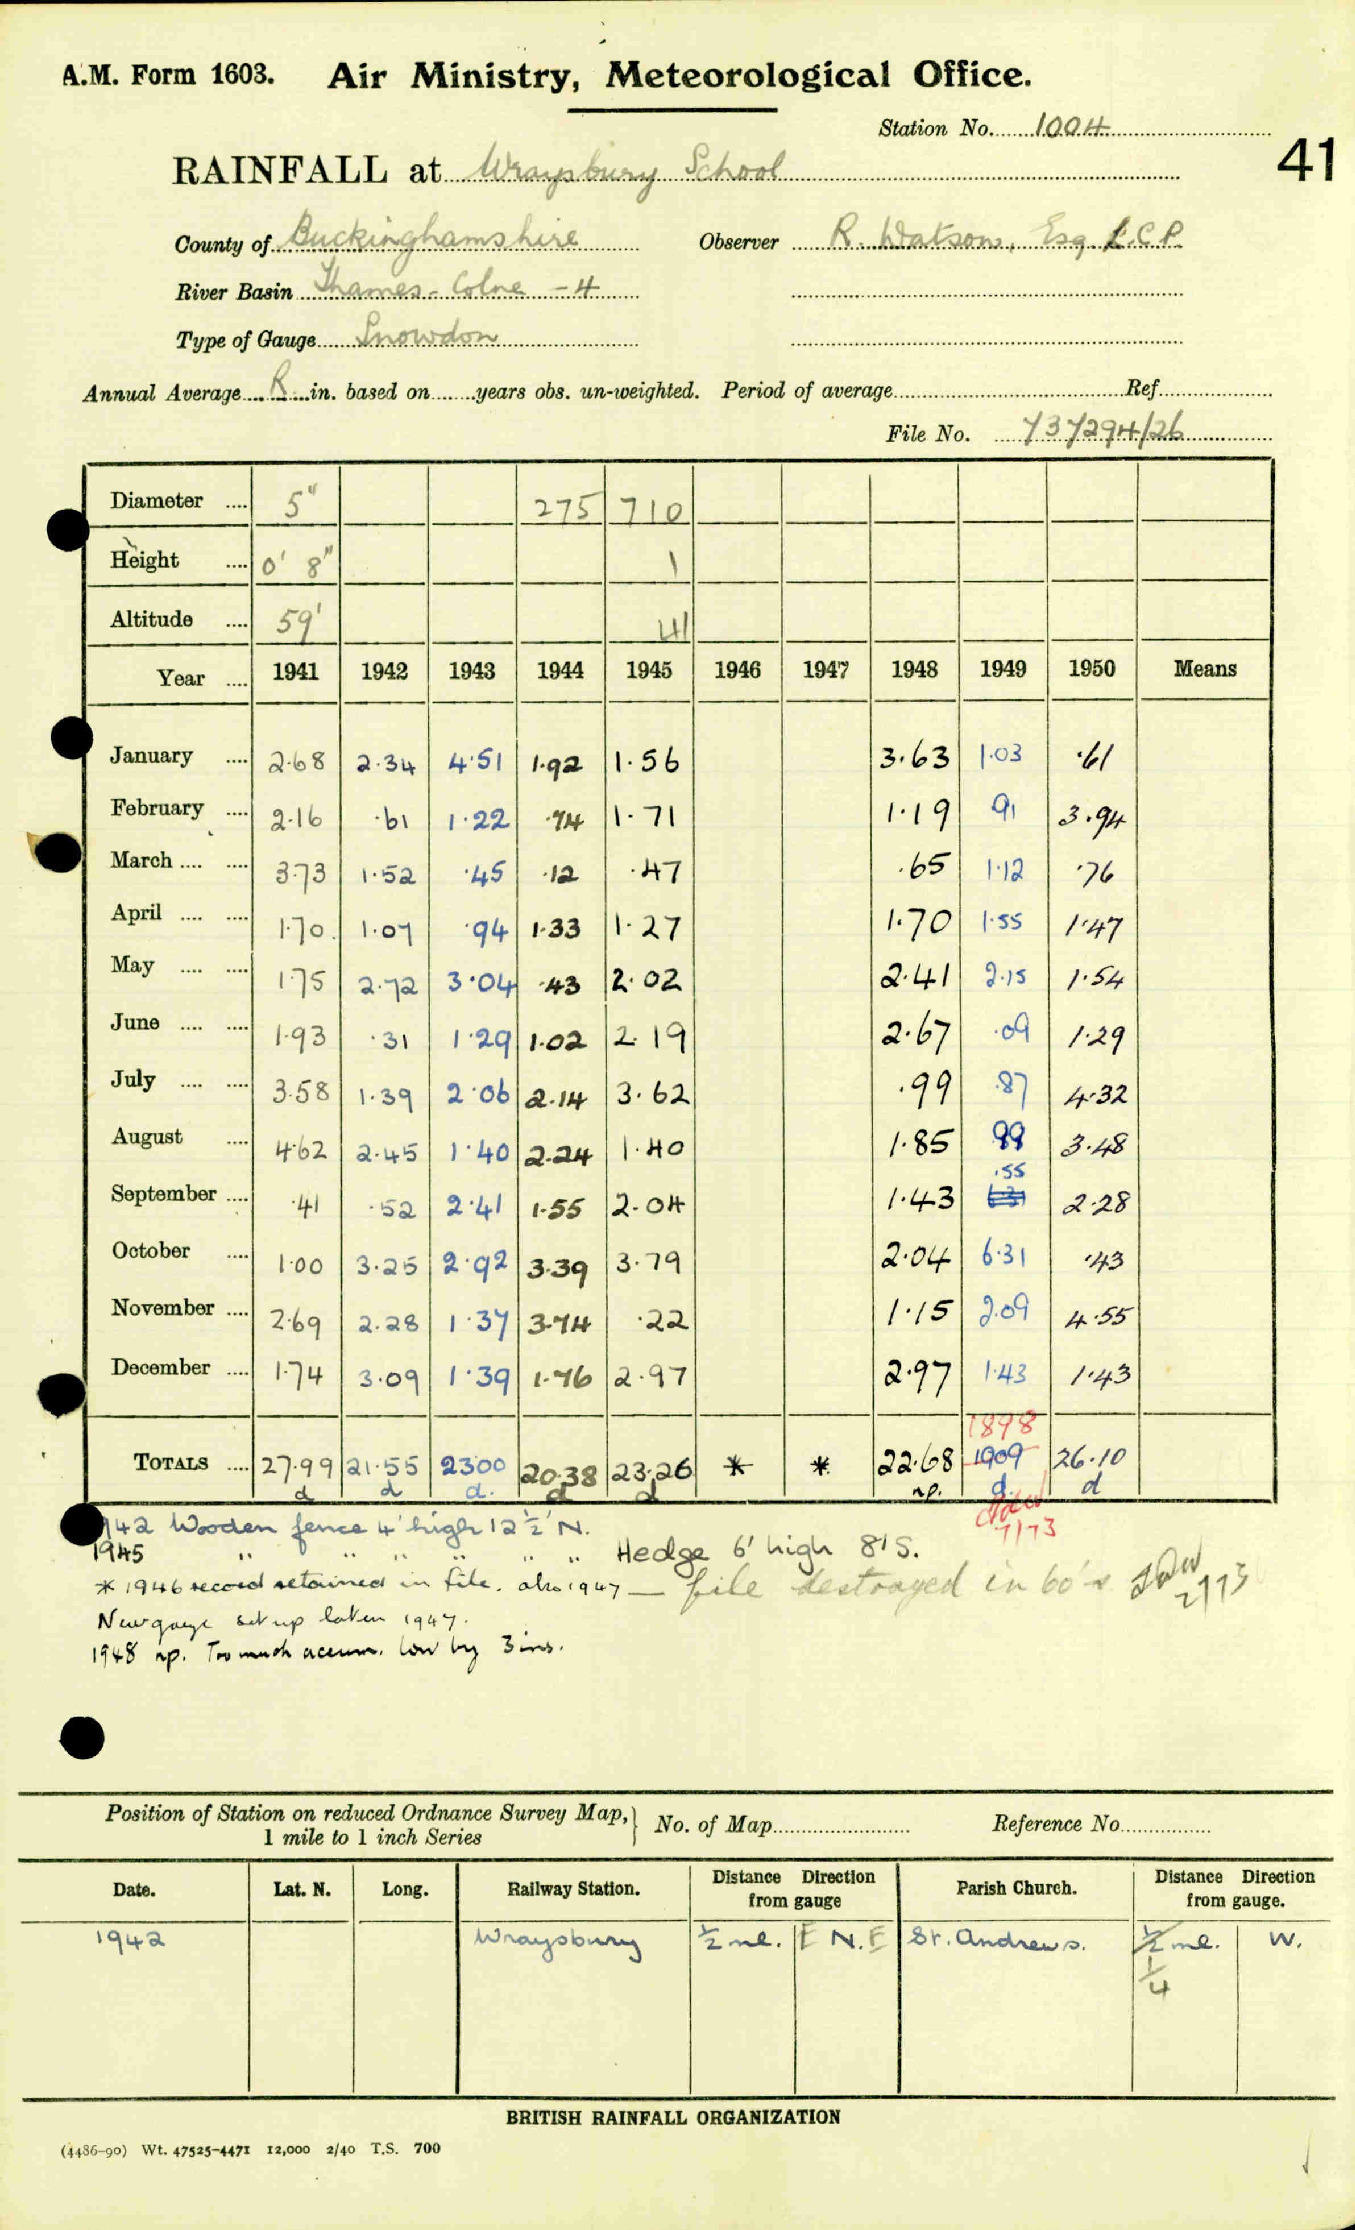 A.M. Form 1603. Air Ministry, Meteorological Office.
Station No. 1004
41
RAINFALL at Wraysbury School
County of Buckinghamshire Observer R. Watson, Esq L.C.P.
River Basin Thames-Colne -4
Type of Gauge Snowdon
Annual Average R in. based on years obs. un-weighted. Period of average Ref
File No. 737294/26
Diameter 5" 275 710
Height 0' 8" 1
Altitude 59' 41
Year 1941 1942 1943 1944 1945 1946 1947 1948 1949 1950 Means
January 2.68 2.34 4.51 1.92 1.56 3.63 1.03 .61
February 2.16 .61 1.22 .74 1.71 1.19 91 3.94
March 3.73 1.52 .45 .12 .47 .65 1.12 .76
April 1.70 1.07 .94 1.33 1.27 1.70 1.55 1.47
May 1.75 2.72 3.04 .43 2.02 2.41 2.15 1.54
June 1.93 .31 1.29 1.02 2.19 2.67 .09 1.29
July 3.58 1.39 2.06 2.14 3.62 .99 .87 4.32
August 4.62 2.45 1.40 2.24 1.40 1.85 99 3.48
.55
September .41 .52 2.41 1.55 2.04 1.43 2.28
October 1.00 3.25 2.92 3.39 3.79 2.04 6.31 .43
November 2.69 2.28 1.37 3.74 .22 1.15 2.09 4.55
December 1.74 3.09 1.39 1.76 2.97 2.97 1.43 1.43
1898
TOTALS 27.99 21.55 23.00 20.38 23.26 * * 22.68 1909 26.10
d d d. d d np. d. d
7/73
1942 Wooden fence 4' high 12½' N.
1945 " " " " " " Hedge 6' high 8' S.
* 1946 record retained in file. also 1947 — file destroyed in 60's
2/73
New gauge set up later 1947.
1948 np. Too much accum. low by 3 ins.
Position of Station on reduced Ordnance Survey Map, 1 mile to 1 inch Series } No. of Map Reference No
Date. Lat. N. Long. Railway Station. Distance Direction from gauge Parish Church. Distance Direction from gauge.
1942 Wraysbury ½ ml. E N.E St. Andrews. ½ ml. W.
¼
BRITISH RAINFALL ORGANIZATION
(4486-90) Wt. 47525-4471 12,000 2/40 T.S. 700